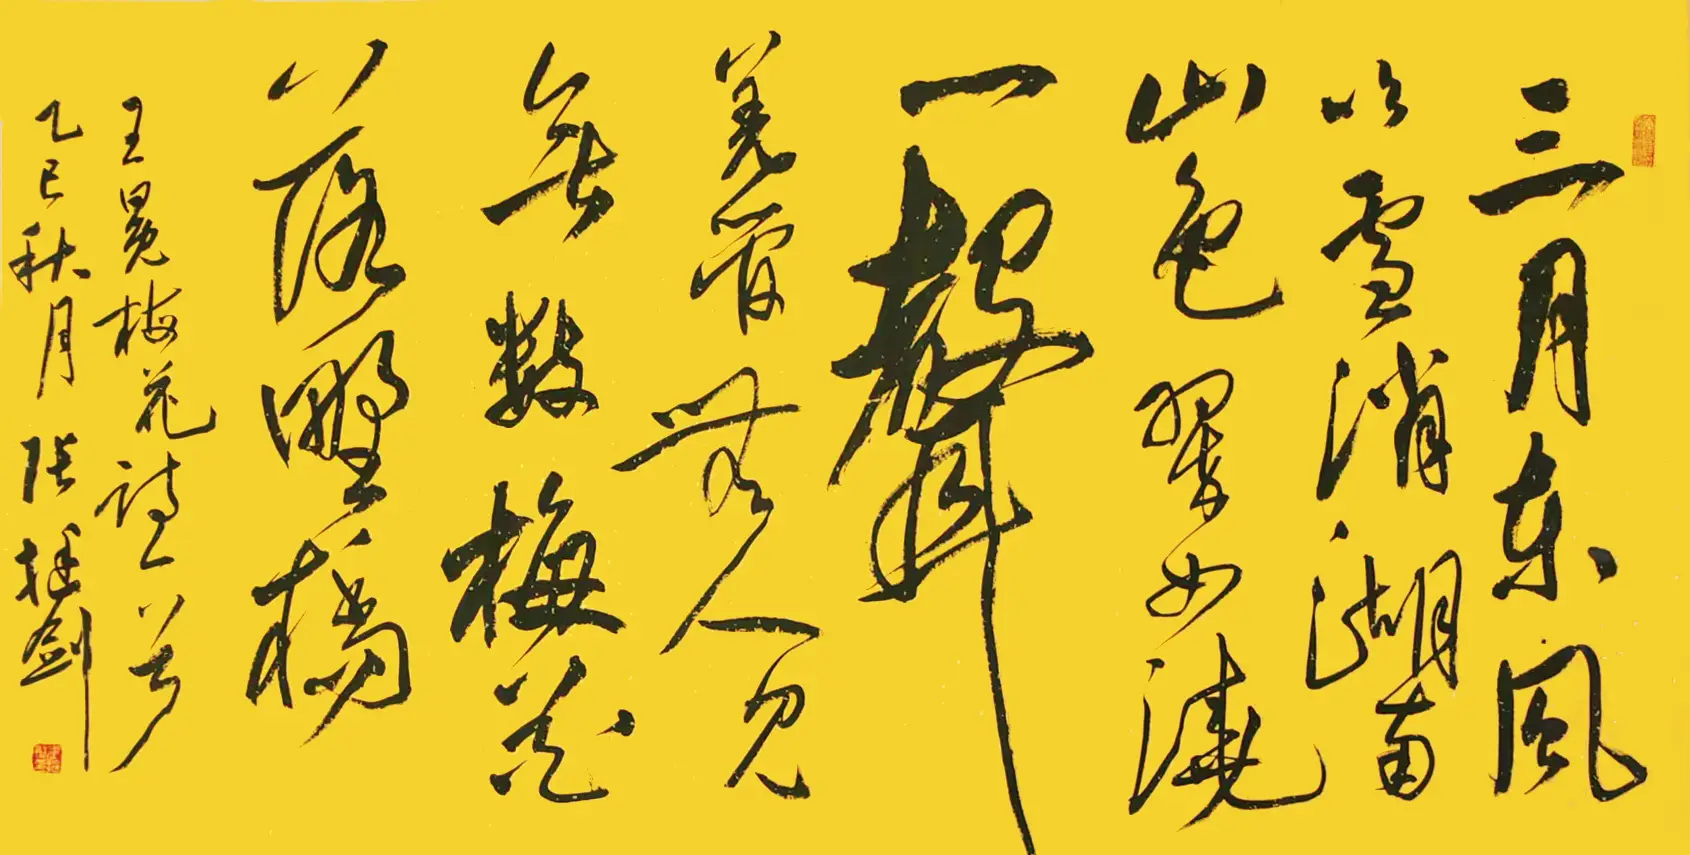 三月東風
吹雪消湖南
山色翠如澆
一聲
羌管無人見
無數梅花
落野橋
王冕梅花詩一首
乙巳秋月張挺劍